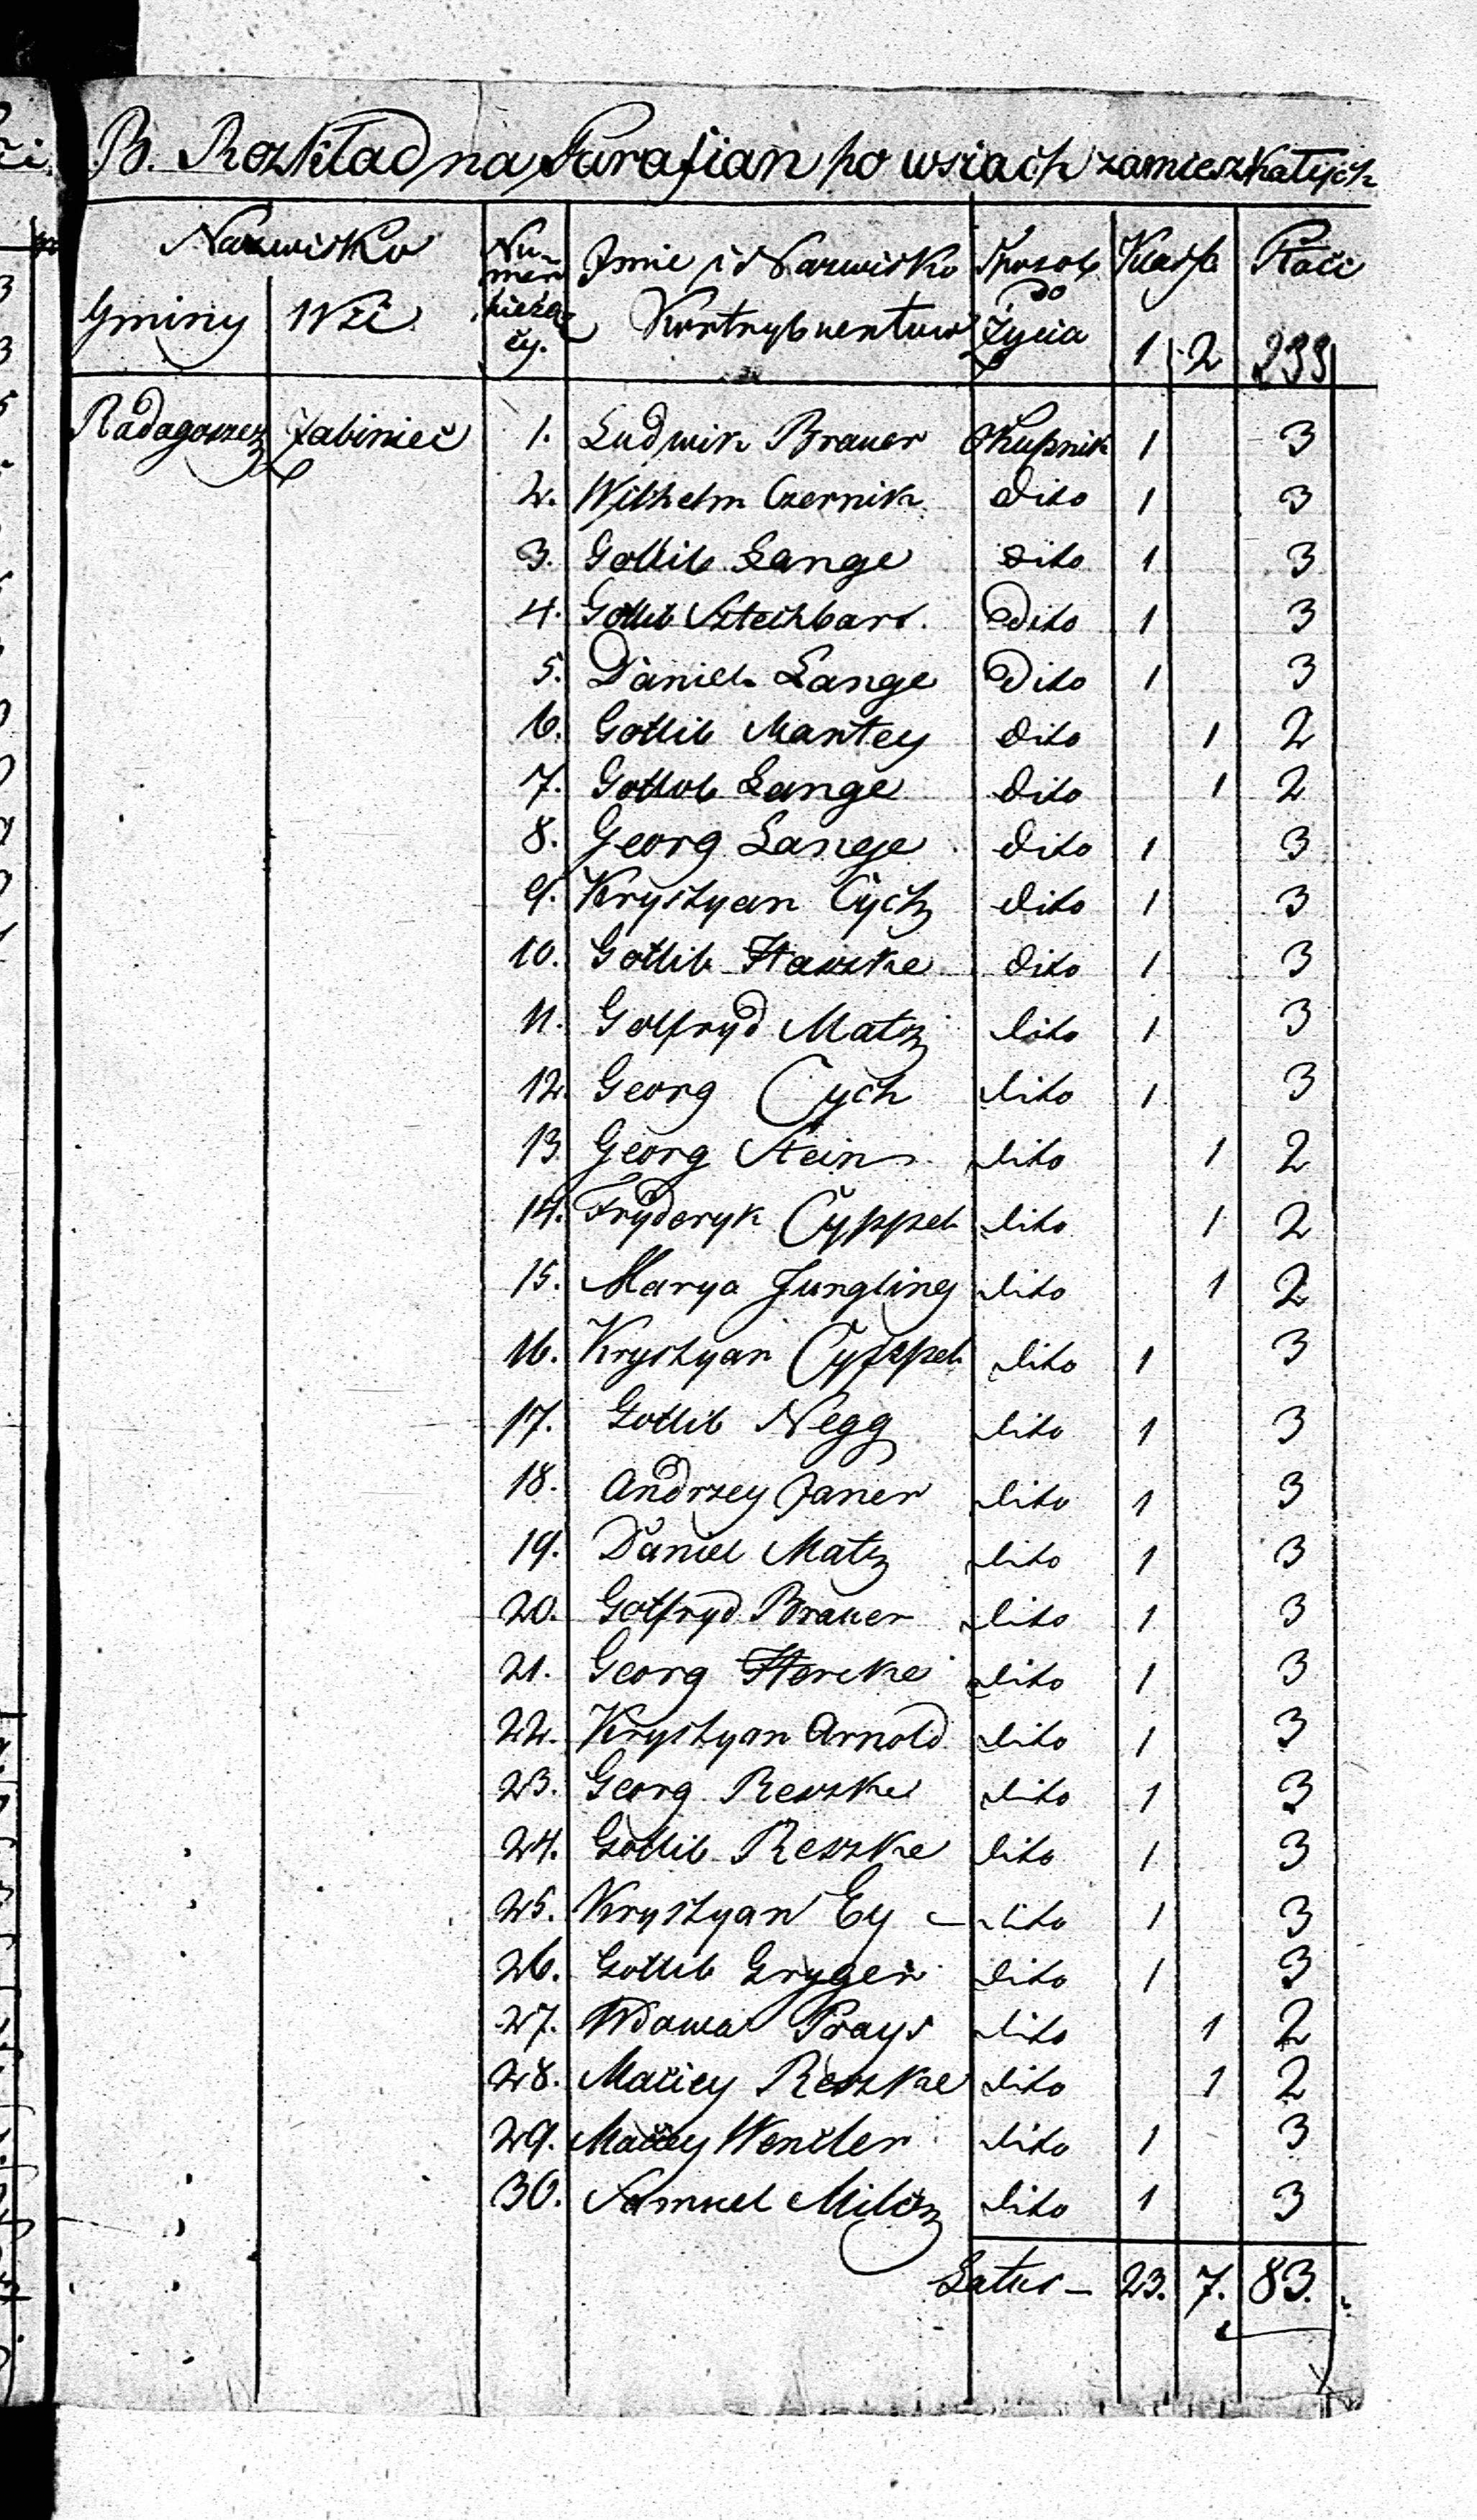 B. Rozkład na Parafian po wsiach zamieszkałych
Nazwisko
Gminy Wsi
Numer bieżący.
Jmie i Nazwisko Kontrybuentow
Sposob do życia
Klassa 1 2
Płaci
Radagoszcz Zabiniec 1. Ludwik Brauer Okupnik 1 3
2. Wilhelm Czernik dito 1 3
3. Gottlib Lange dito 1 3
4. Gottlib Sztechbart. dito 1 3
5. Daniel Lange dito 1 3
6. Gottlib Mantey dito 1 2
7. Gottlob Lange dito 1 2
8. Georg Lange dito 1 3
9. Krystyan Cych dito 1 3
10. Gottlib Haszke dito 1 3
11. Gotfryd Matz dito 1 3
12. Georg Cych dito 1 3
13 Georg Stein dito 1 2
14. Fryderyk Cyppel dito 1 2
15. Marya Jungling dito 1 2
16. Krystyan Cyppel dito 1 3
17. Gottlib Negg dito 1 3
18. Andrzey Janer dito 1 3
19. Daniel Matz dito 1 3
20. Gotfryd Brauer dito 1 3
21. Georg Hercke dito 1 3
22. Krystyan Arnold dito 1 3
23. Georg Reszke dito 1 3
24. Gottlib Reszke dito 1 3
25. Krystyan Ey dito 1 3
26. Gottlib Gryger dito 1 3
27. Wdowa Prays dito 1 2
28. Maciey Reszke dito 1 2
29. Maciey Wencler dito 1 3
30. Samuel Milcz dito 1 3
Latus – 23. 7. 83.